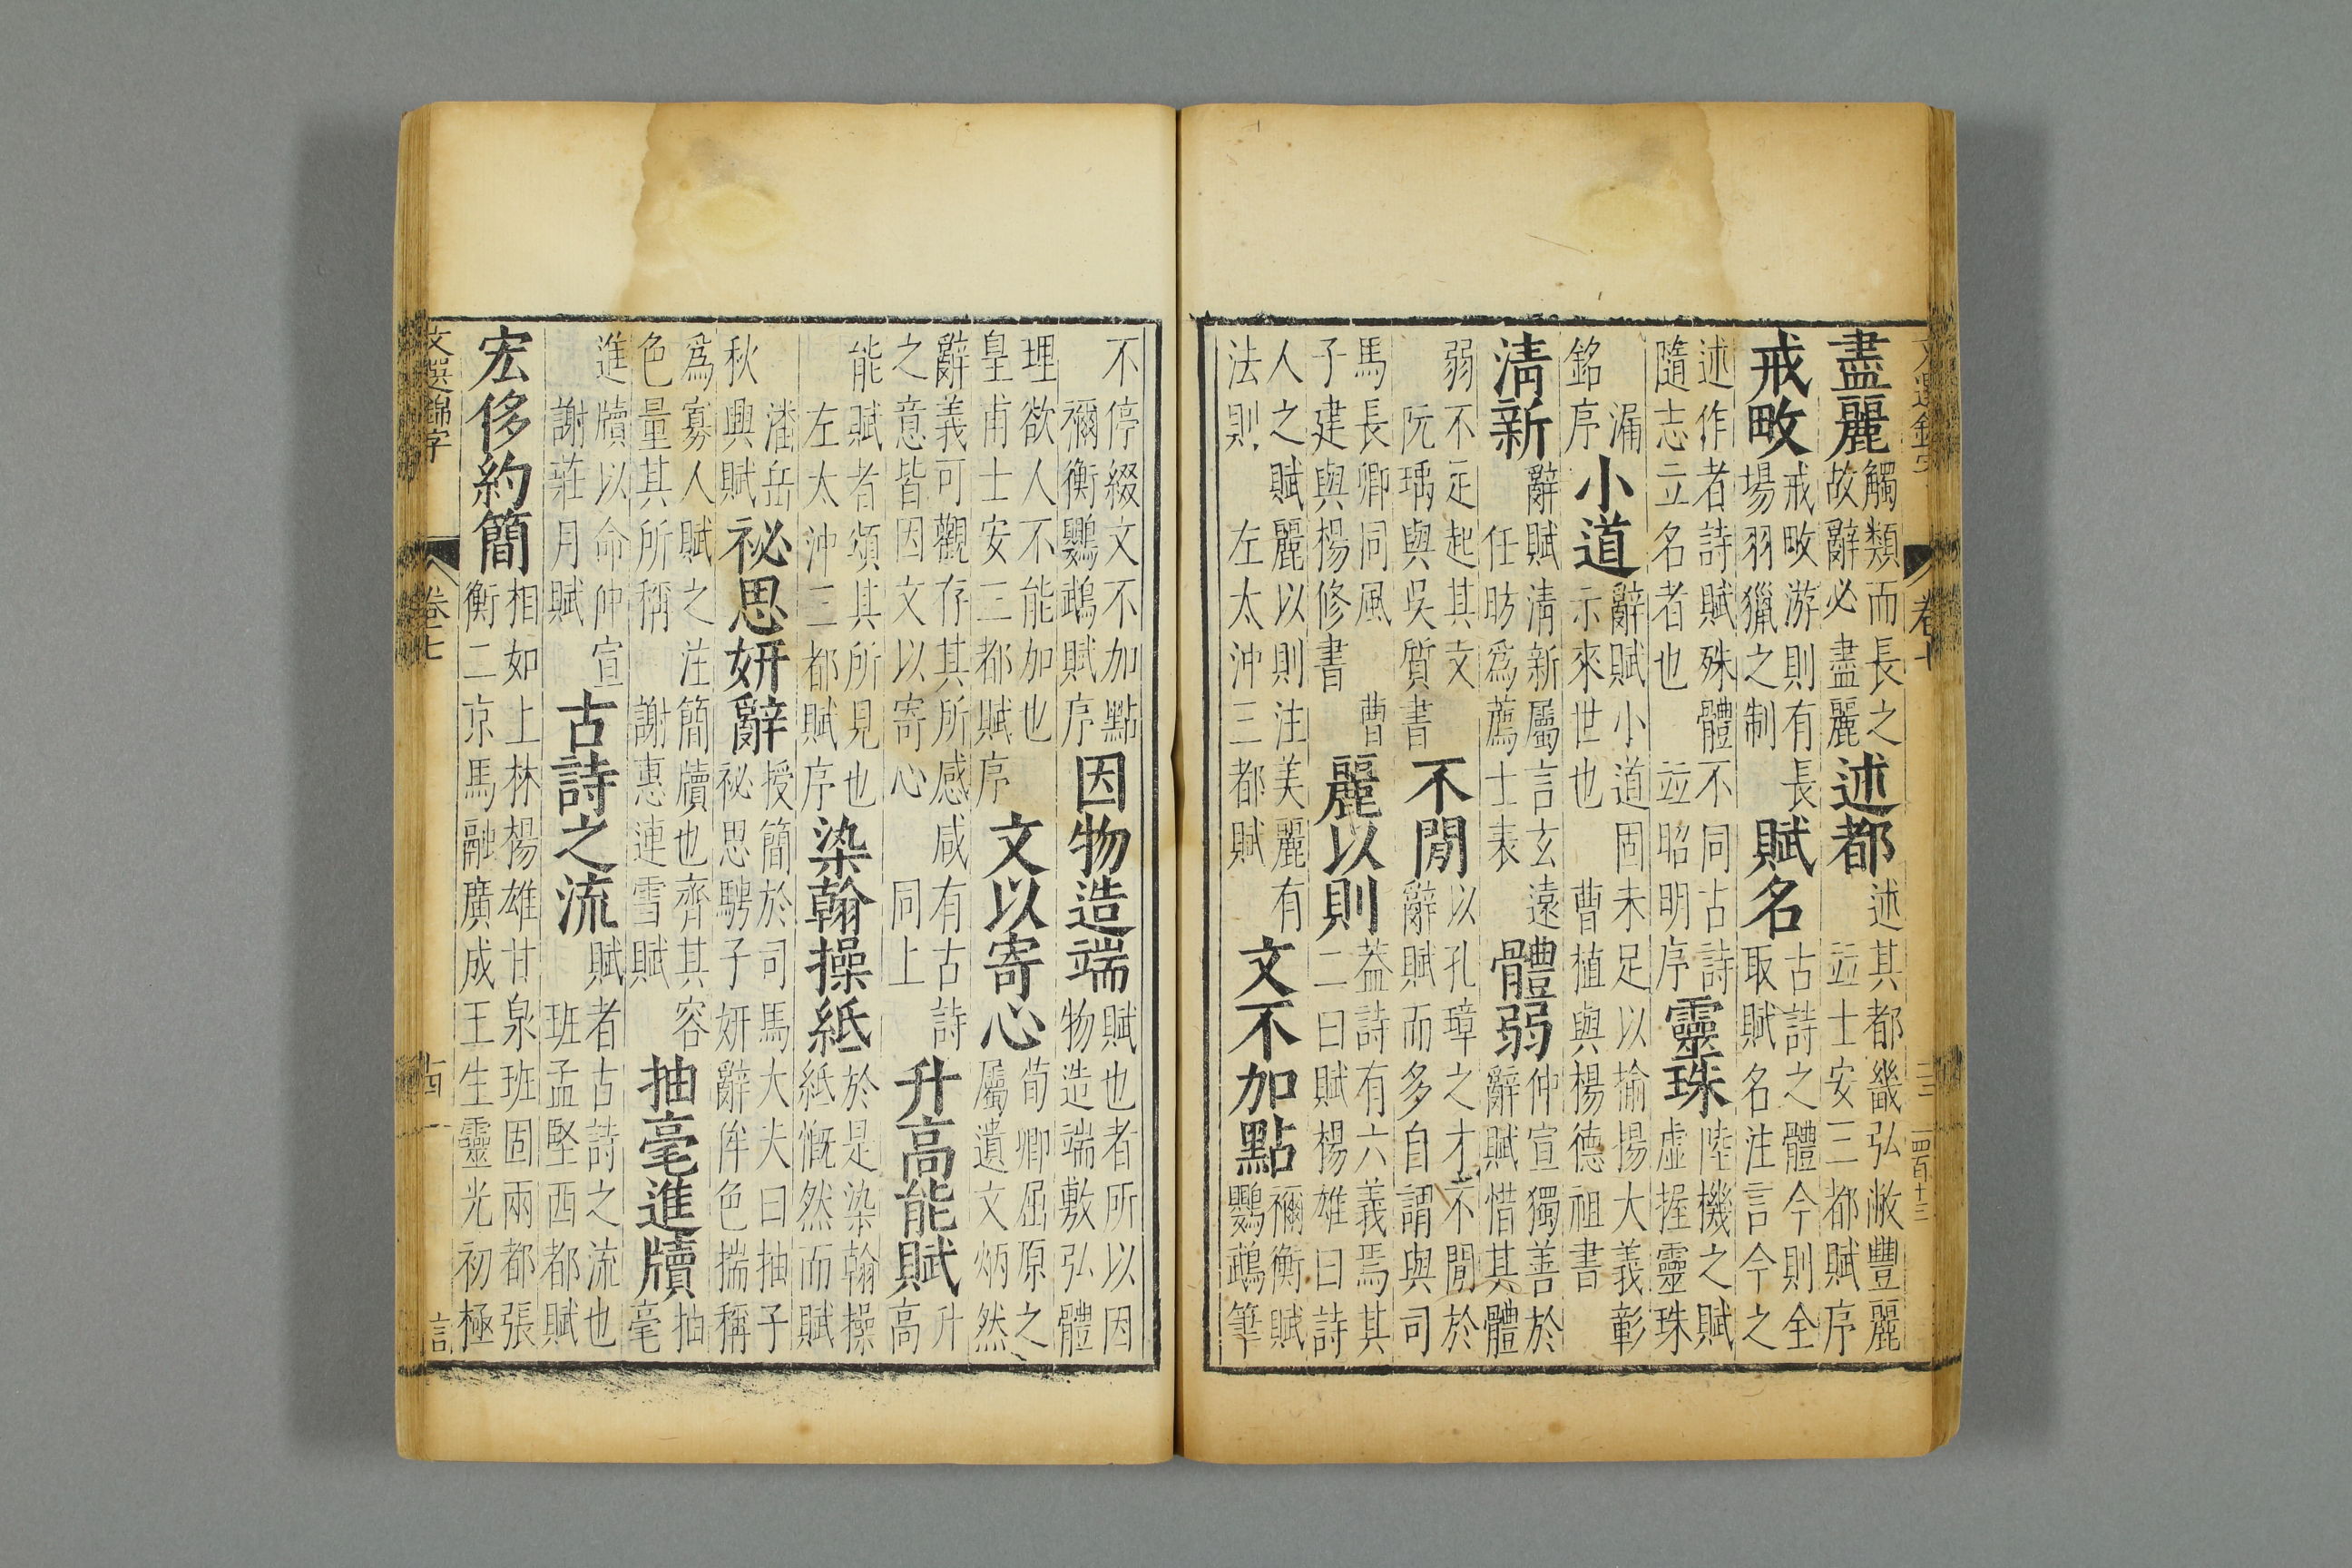 盡麗觸類而長之故辭必盡麗述都述其都畿弘敞豐麗竝士安三都賦序
戒畋戒畋游則有長場羽獵之制賦名古詩之體今則全取賦名注言今之
述作者詩賦殊體不同古詩隨志立名者也竝昭明序靈珠陸機之賦虛握靈珠
漏銘序小道辭賦小道固未足以揄揚大義彰示來世也曹植與楊德祖書
清新辭賦清新屬言玄遠任昉爲薦士表體弱仲宣獨善於辭賦惜其體
弱不足起其文阮瑀與吳質書不閒以孔璋之才不閒於辭賦而多自謂與司
馬長卿同風曹子建與楊修書麗以則葢詩有六義焉其二曰賦楊雄曰詩
人之賦麗以則注美麗有法則左太沖三都賦文不加點禰衡賦鸚鵡筆
不停綴文不加點禰衡鸚鵡賦序因物造端賦也者所以因物造端敷弘體
理欲人不能加也皇甫士安三都賦序文以寄心荀卿屈原之屬遺文炳然
辭義可觀存其所感咸有古詩之意皆因文以寄心同上升高能賦升高
能賦者頌其所見也左太沖三都賦序染翰操紙於是染翰操紙慨然而賦
潘岳秋興賦祕思妍辭授簡於司馬大夫曰抽子祕思騁子妍辭侔色揣稱
爲寡人賦之注簡牘也齊其容色量其所稱謝惠連雪賦抽毫進牘抽毫
進牘以命仲宣謝莊月賦古詩之流賦者古詩之流也班孟堅西都賦
宏侈約簡相如上林楊雄甘泉班固兩都張衡二京馬融廣成王生靈光初極
文選錦字 卷七 十四 言